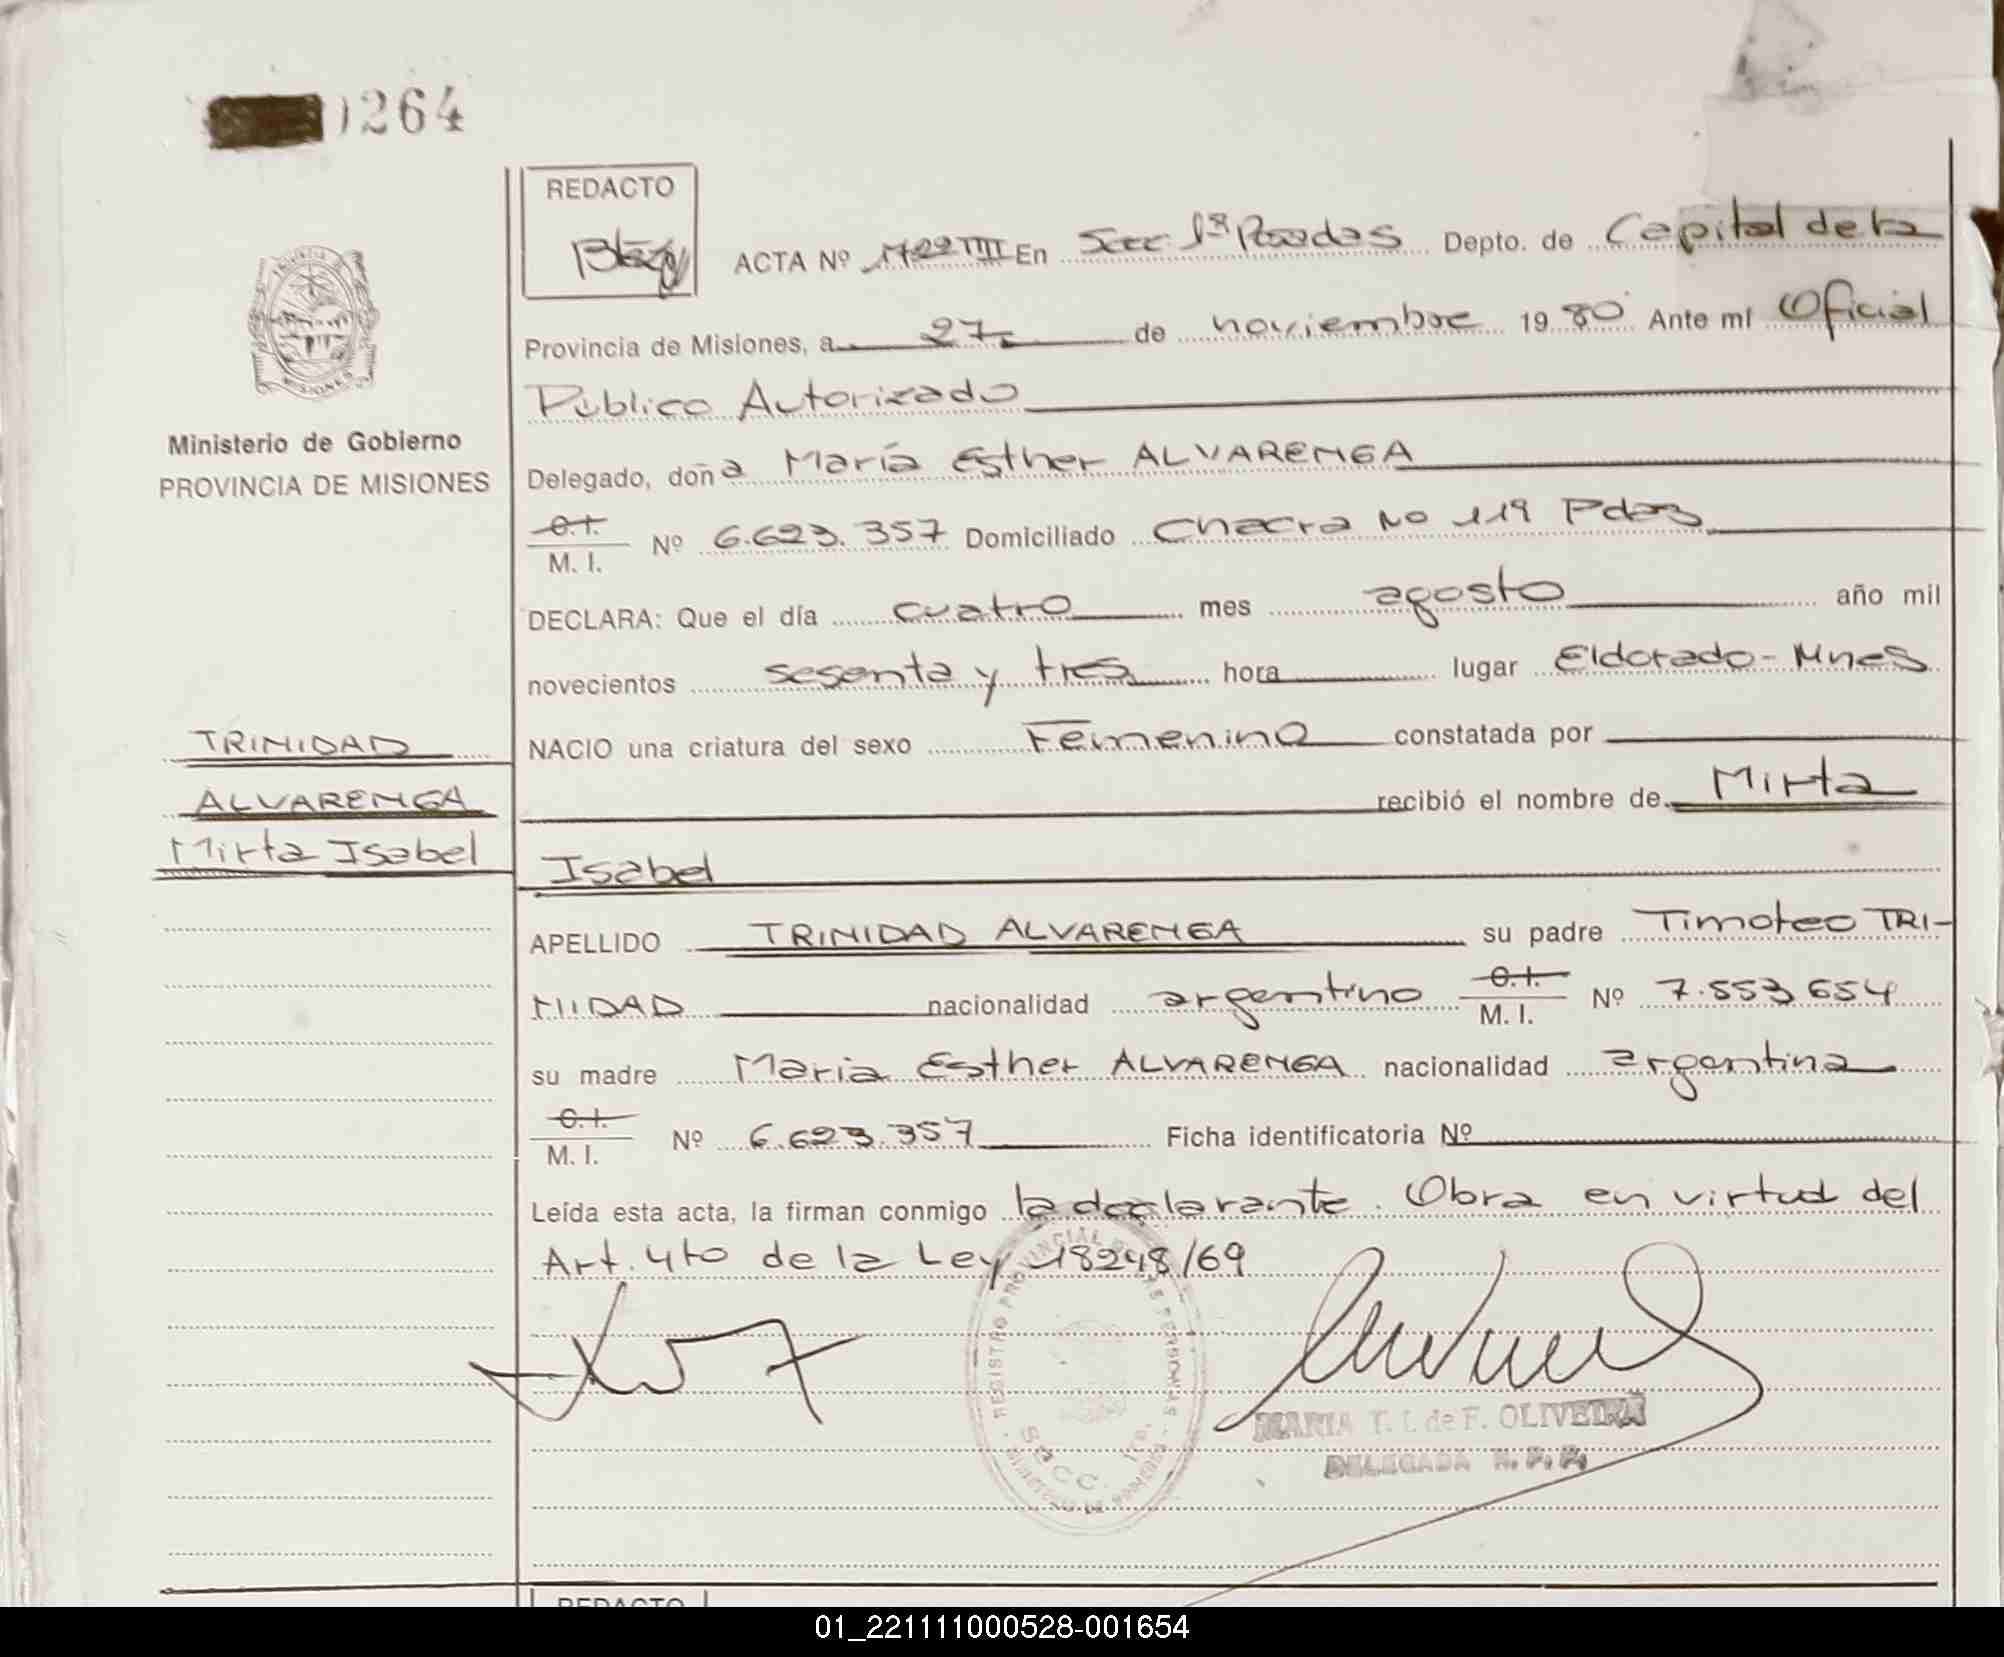 264
REDACTO
ACTA Nº 1722 TIII En Secc. 1ª Posadas Depto. de Capital de la
Provincia de Misiones, a 27 de noviembre 1980 Ante mí Oficial
Público Autorizado
Ministerio de Gobierno
PROVINCIA DE MISIONES
Delegado, doña María Esther ALVARENGA
C.I.
M. I. Nº 6.623.357 Domiciliado Chacra No 119 Pdas
DECLARA: Que el día cuatro mes agosto año mil
novecientos sesenta y tres hora lugar Eldorado - Mnes
NACIO una criatura del sexo Femenino constatada por
recibió el nombre de Mirta
Isabel
TRINIDAD
ALVARENGA
Mirta Isabel
APELLIDO TRINIDAD ALVARENGA su padre Timoteo TRI-
NIDAD nacionalidad argentino C.I. M. I. Nº 7.553.654
su madre Maria Esther ALVARENGA nacionalidad argentina
C.I.
M. I. Nº 6.623.357 Ficha identificatoria Nº
Leída esta acta, la firman conmigo la declarante. Obra en virtud del
Art. 4to de la Ley 18248/69
REGISTRO PROVINCIAL DE LAS PERSONAS
SECC. 1ra.
MARIA T. I. de F. OLIVEIRA
DELEGADA R. P. P.
REDACTO
01_221111000528-001654